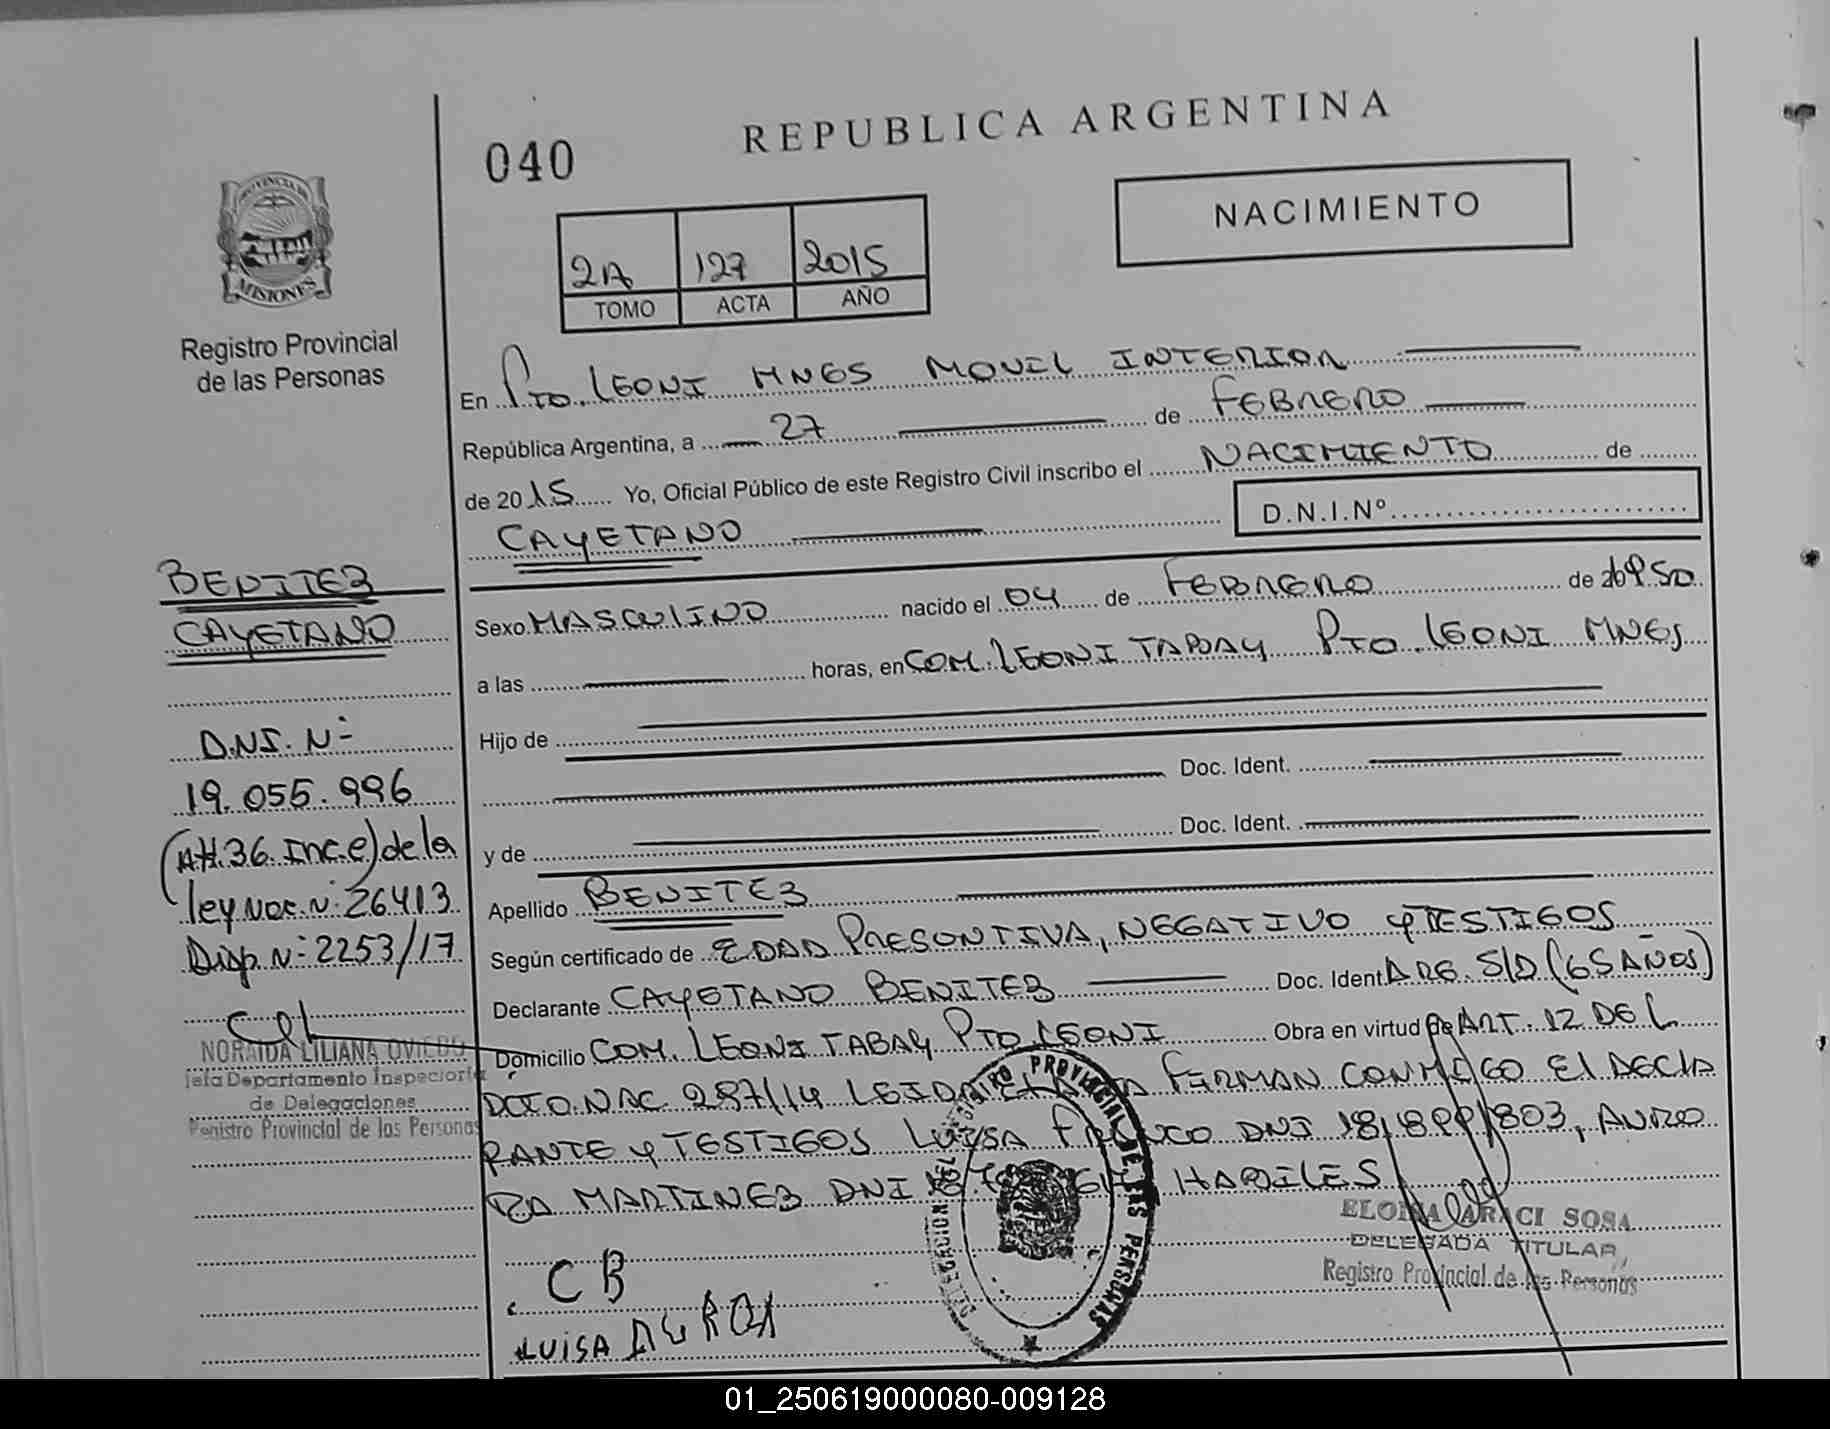 REPUBLICA ARGENTINA
040
NACIMIENTO
PROVINCIA DE
MISIONES
Registro Provincial
de las Personas
2A 127 2015
TOMO ACTA AÑO
En Pto. LEONI MNES MOVIL INTERIOR
República Argentina, a 27 de FEBRERO
de 2015 Yo, Oficial Público de este Registro Civil inscribo el NACIMIENTO de
CAYETANO D.N.I.Nº
BENITEZ
CAYETANO
D.N.I. Nº
19.055.996
(Art.36.Inc.e) de la
ley Nac.Nº 26413
Disp.Nº 2253/17
NORAIDA LILIANA OVIEDO
Jefa Departamento Inspectoria
de Delegaciones
Registro Provincial de las Personas
Sexo MASCULINO nacido el 04 de FEBRERO de 1950
a las horas, en COM. LEONI TABAY Pto. LEONI MNES
Hijo de
Doc. Ident.
y de Doc. Ident.
Apellido BENITEZ
Según certificado de EDAD PRESONTIVA, NEGATIVO y TESTIGOS
Declarante CAYETANO BENITEZ Doc. Ident ARG. S/D (65 AÑOS)
Domicilio COM. LEONI TABAY Pto LEONI Obra en virtud de ART. 12 DEL
DCTO.NAC 297/14 LEIDA EL ACTA FIRMAN CONMIGO El DECLA
RANTE y TESTIGOS LUISA FRANCO DNI 18.899.803, AURO
RA MARTINEZ DNI HABILES
CB
LUISA AUROA
DELEGACION DEL REGISTRO PROVINCIAL DE LAS PERSONAS
ELOINA ARACI SOSA
DELEGADA TITULAR
Registro Provincial de las Personas
01_250619000080-009128